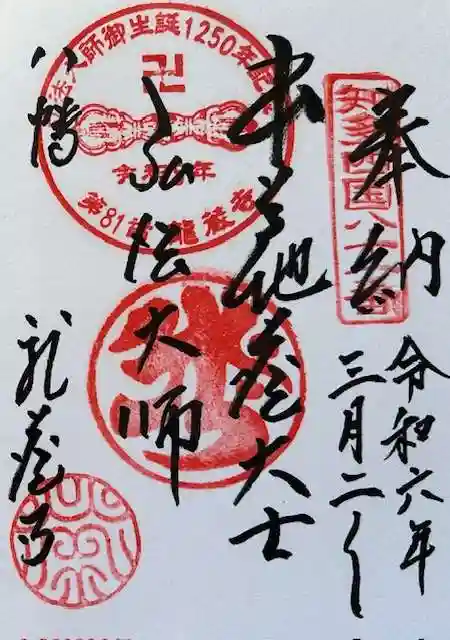 奉納
令和六年
三月二
本尊地蔵大士
弘法大師
八幡
龍蔵寺
知多四国八十一番
弘法大師御生誕1250年記念
卍
令和 年
第81番 龍蔵寺